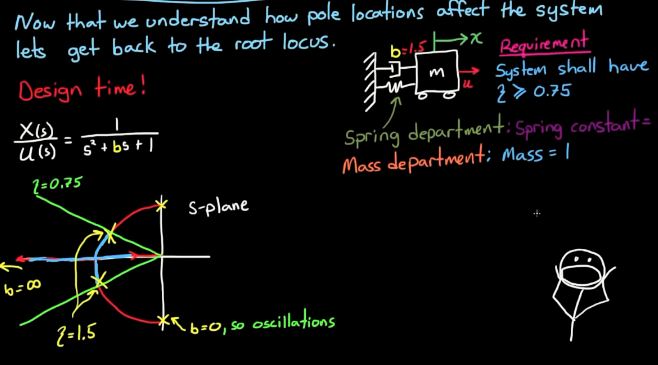 Now that we understand how pole locations affect the system
lets get back to the root locus.
Design time!
X(s)/U(s) = 1/(s² + bs + 1)
b=1.5
x
m
u
Requirement
System shall have
ζ ≥ 0.75
Spring department: Spring constant =
Mass department: Mass = 1
ζ=0.75
S-plane
b=∞
ζ=1.5
b=0, so oscillations